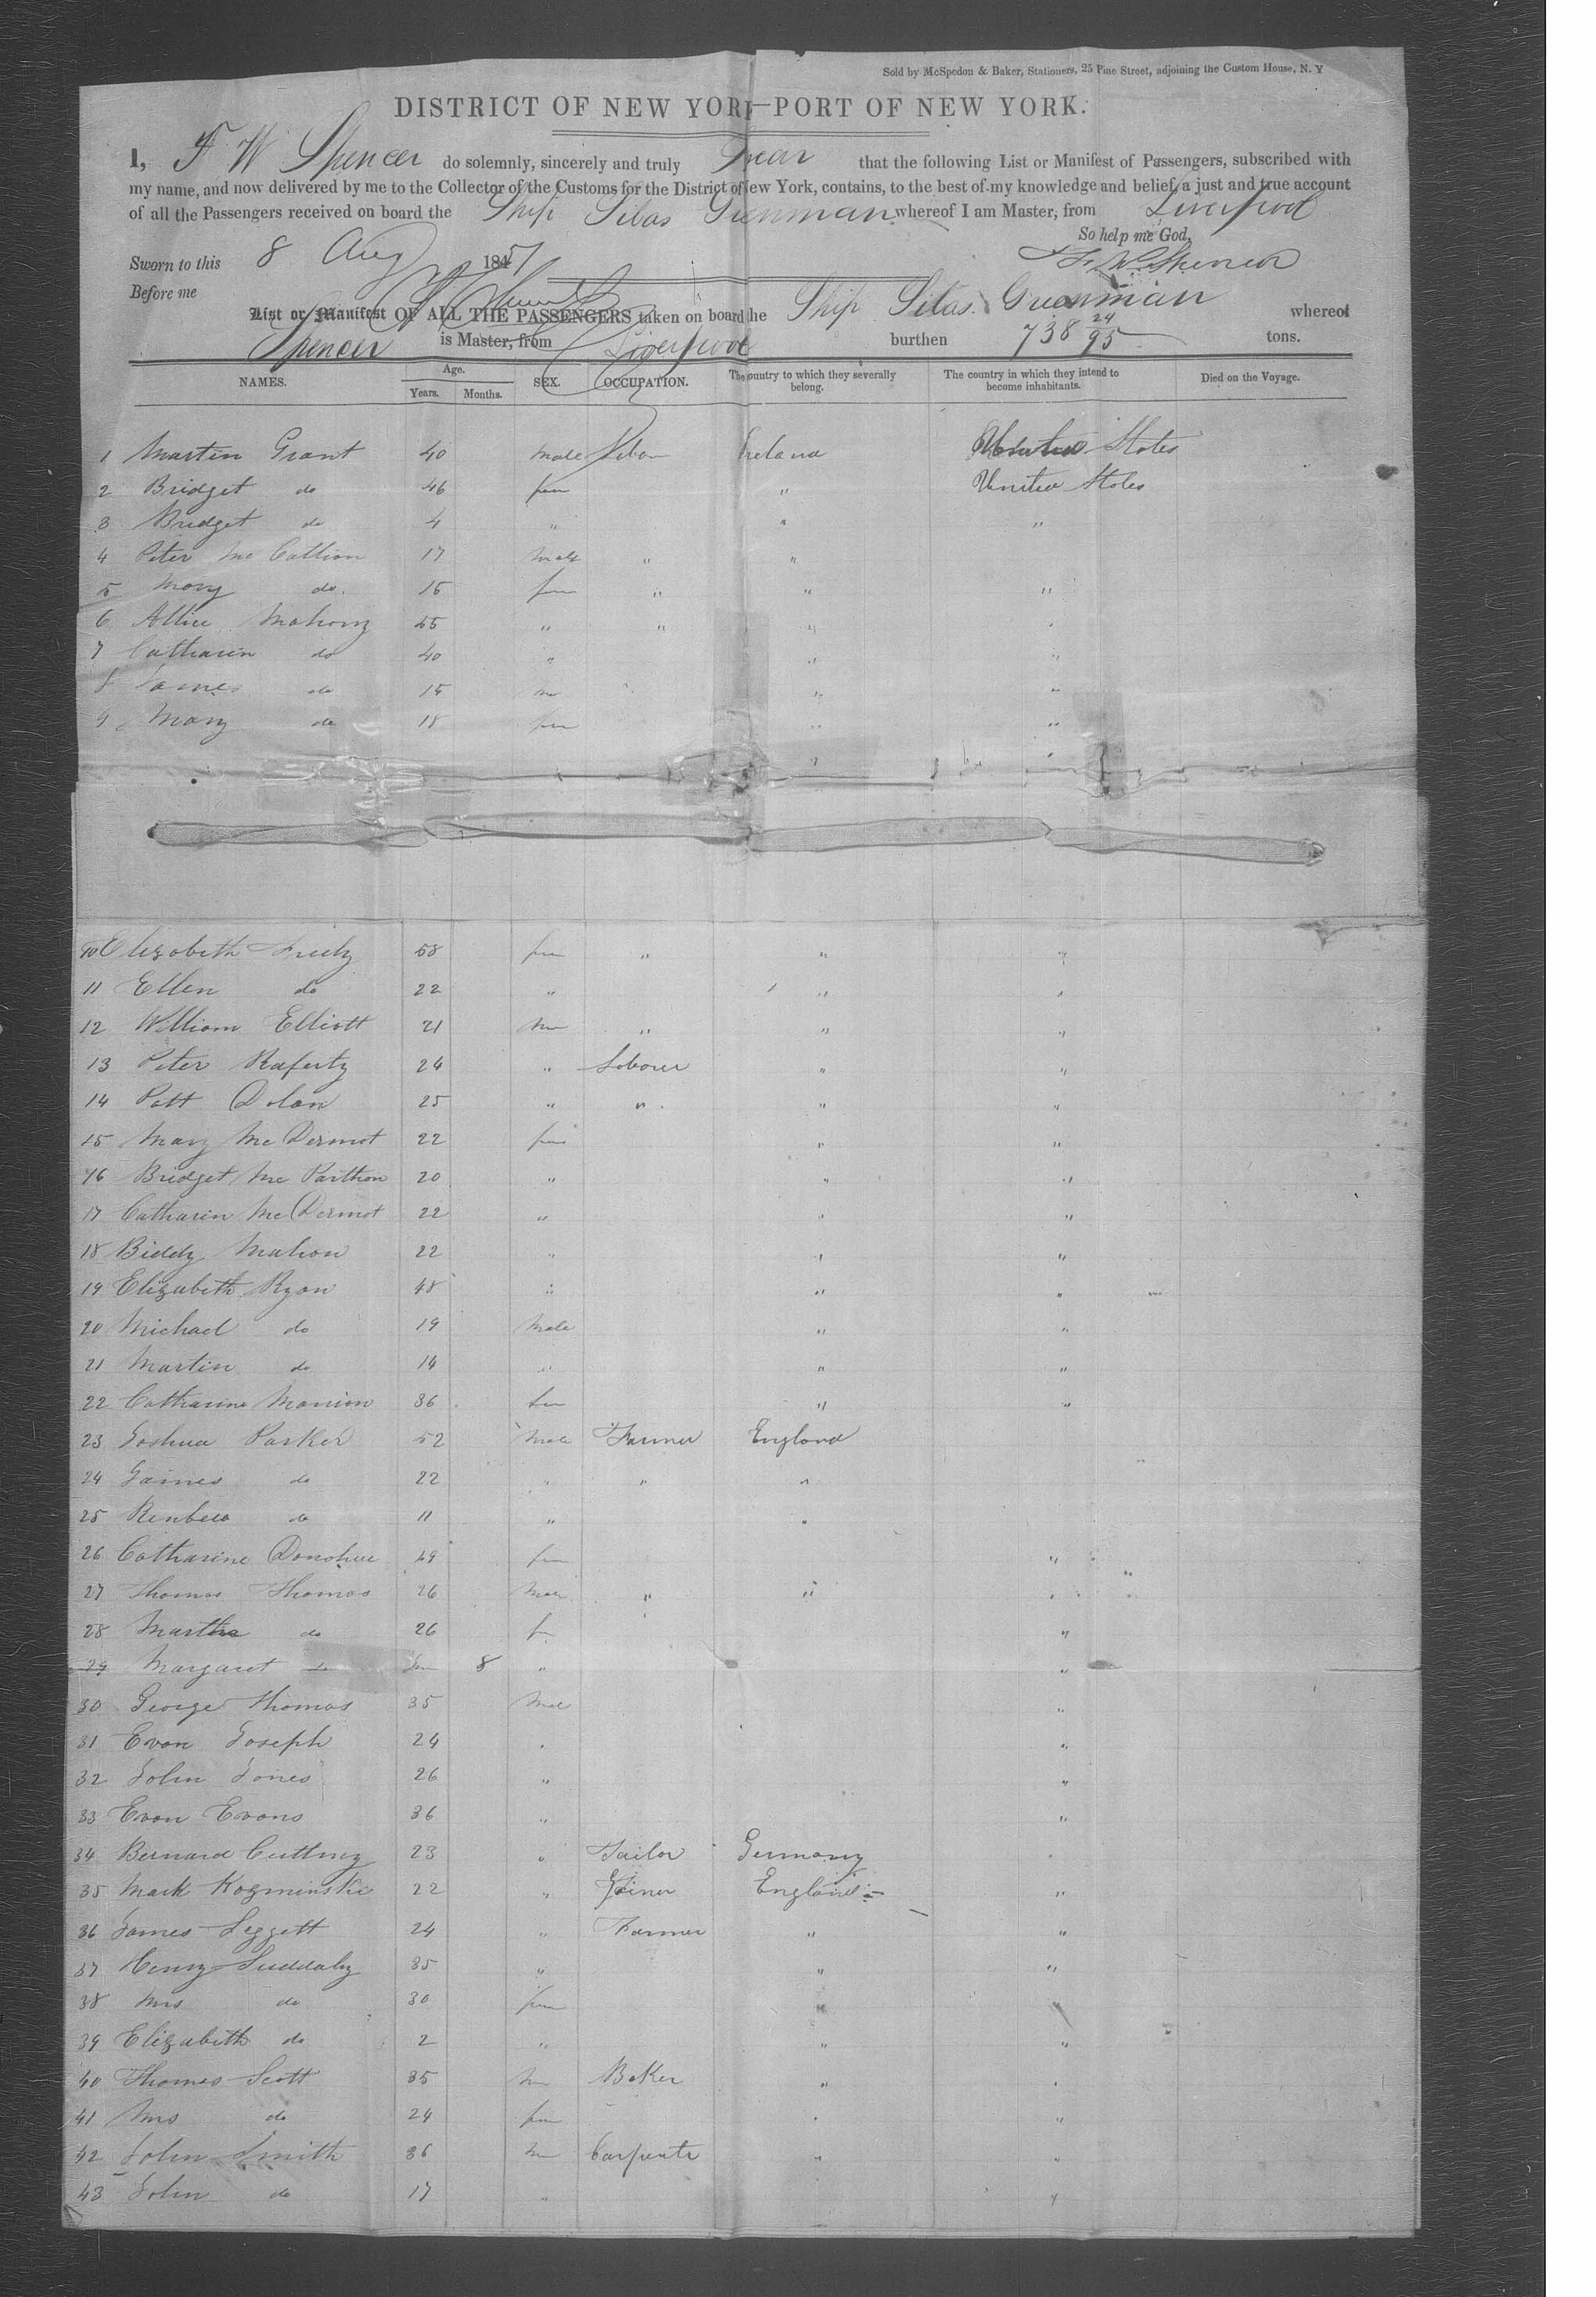 Sold by McSpedon & Baker, Stationers, 25 Pine Street, adjoining the Custom House, N. Y
DISTRICT OF NEW YORK—PORT OF NEW YORK.
I, F W Spencer do solemnly, sincerely and truly Swear that the following List or Manifest of Passengers, subscribed with
my name, and now delivered by me to the Collector of the Customs for the District of New York, contains, to the best of my knowledge and belief, a just and true account
of all the Passengers received on board the Ship Silas Greenman whereof I am Master, from Liverpool
So help me God,
Sworn to this 8 Aug 1851 F. W. Spencer
Before me
List or Manifest OF ALL THE PASSENGERS taken on board the Ship Silas Greenman whereof
Spencer is Master, from Liverpool burthen 738 24/95 tons.
NAMES. Age. Years. Months. SEX. OCCUPATION. The country to which they severally belong. The country in which they intend to become inhabitants. Died on the Voyage.
1 Martin Grant 40 Male Ireland United States
2 Bridget do 46 fem " United States
3 Bridget do 4 " " "
4 Peter Mc Callion 17 Male " "
5 Mary do. 16 fem " " "
6 Allice Mahony 45 " " " "
7 Catharin do 40 " " "
8 James do 15 m " "
9 Mary do 18 fem " "
10 Elizabeth Freely 58 fem " " "
11 Ellen do 22 " " "
12 William Elliott 21 m " " "
13 Peter Raferty 24 " Labour " "
14 Patt Dolan 25 " " " "
15 Mary McDermot 22 fem " "
16 Bridget Mc Parthon 20 " " "
17 Catharin McDermot 22 " " "
18 Biddy Mahon 22 " " "
19 Elizabeth Ryan 48 " " "
20 Michael do 19 Male " "
21 Martin do 14 " " "
22 Catharine Mannion 36 fem " "
23 Joshua Parker 52 Male Farmer England
24 James do 22 " " "
25 Renben do 11 " "
26 Catharine Donohue 49 fem "
27 Thomas Thomas 26 Male " " "
28 Martha do 26 f "
29 Margaret do 8 " "
30 George Thomas 35 Male "
31 Evan Joseph 24 " "
32 John Jones 26 " "
33 Evan Evans 36 " "
34 Bernard Cuttney 23 " Tailor Germany "
35 Mark Kozminskie 22 " Joiner England "
36 James Leggett 24 " Farmer " "
37 Henry Suddaby 35 " " "
38 Mrs do 30 fem " "
39 Elizabeth do 2 " " "
40 Thomas Scott 35 m Baker " "
41 Mrs do 24 fem " "
42 John Smith 36 m Carpente " "
43 John do 17 " "